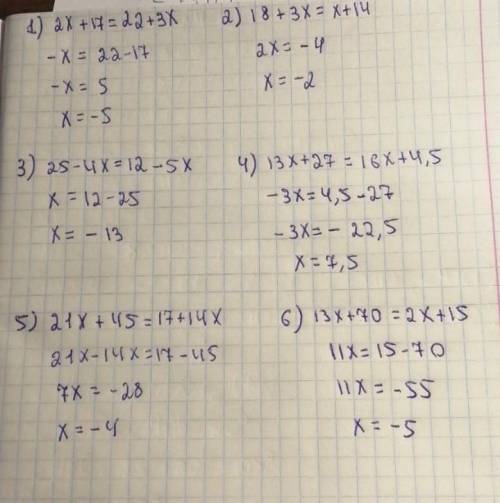 1) 2x+17=22+3x
-x = 22-17
-x = 5
x=-5
2) 18+3x=x+14
2x=-4
x=-2
3) 25-4x=12-5x
x=12-25
x=-13
4) 13x+27=16x+4,5
-3x=4,5-27
-3x=-22,5
x=7,5
5) 21x+45=17+14x
21x-14x=17-45
7x=-28
x=-4
6) 13x+70=2x+15
11x=15-70
11x=-55
x=-5